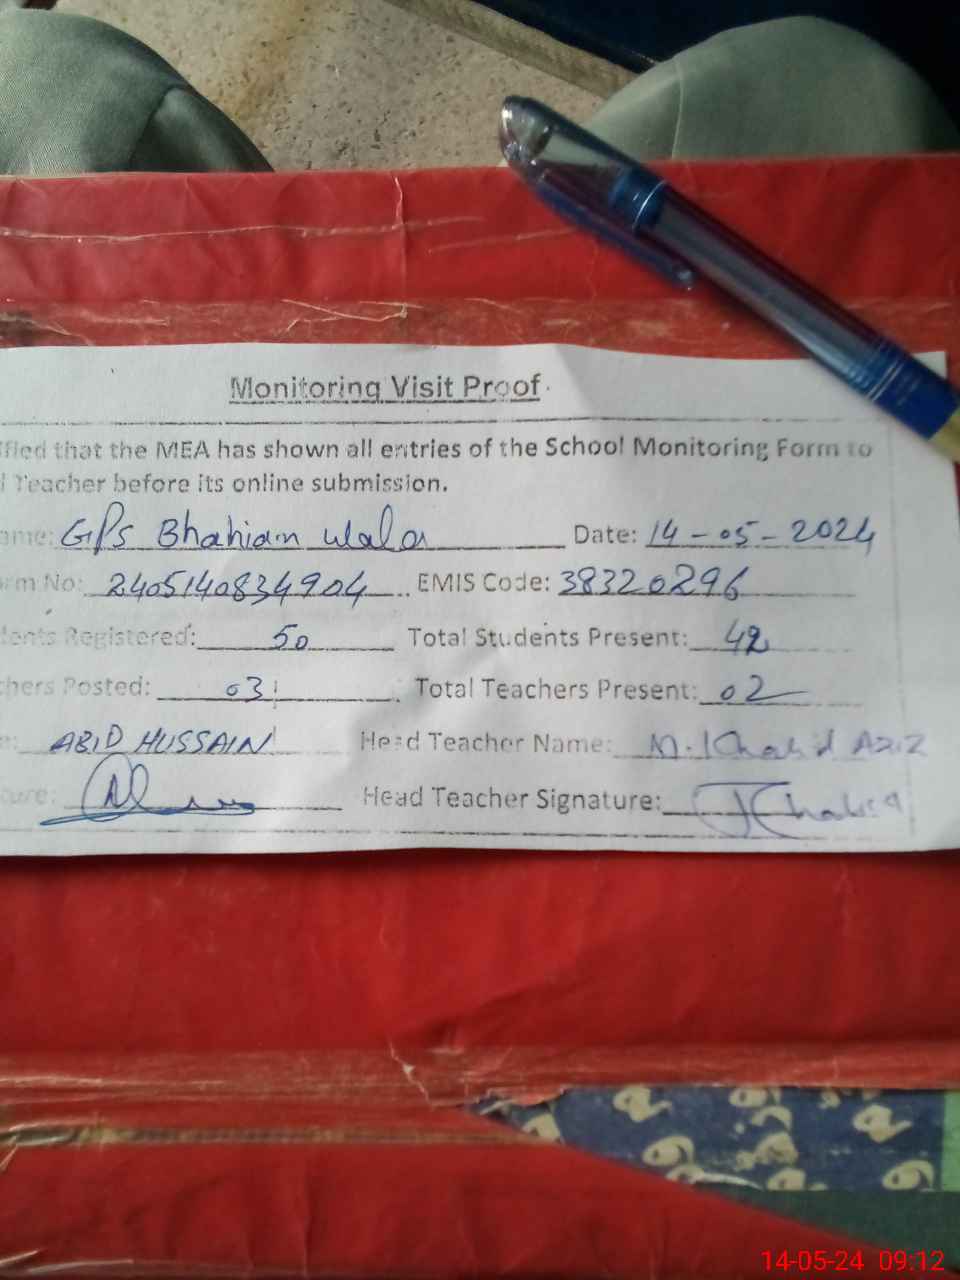 Monitoring Visit Proof
ified that the MEA has shown all entries of the School Monitoring Form to
l Teacher before its online submission.
ame: GPS Bhahian wala Date: 14-05-2024
rm No: 2405140834904 EMIS Code: 38320296
dents Registered: 50 Total Students Present: 42
chers Posted: 03 Total Teachers Present: 02
e: ABID HUSSAIN Head Teacher Name: M. Khalid Aziz
ture: Head Teacher Signature: Khalid
14-05-24 09:12